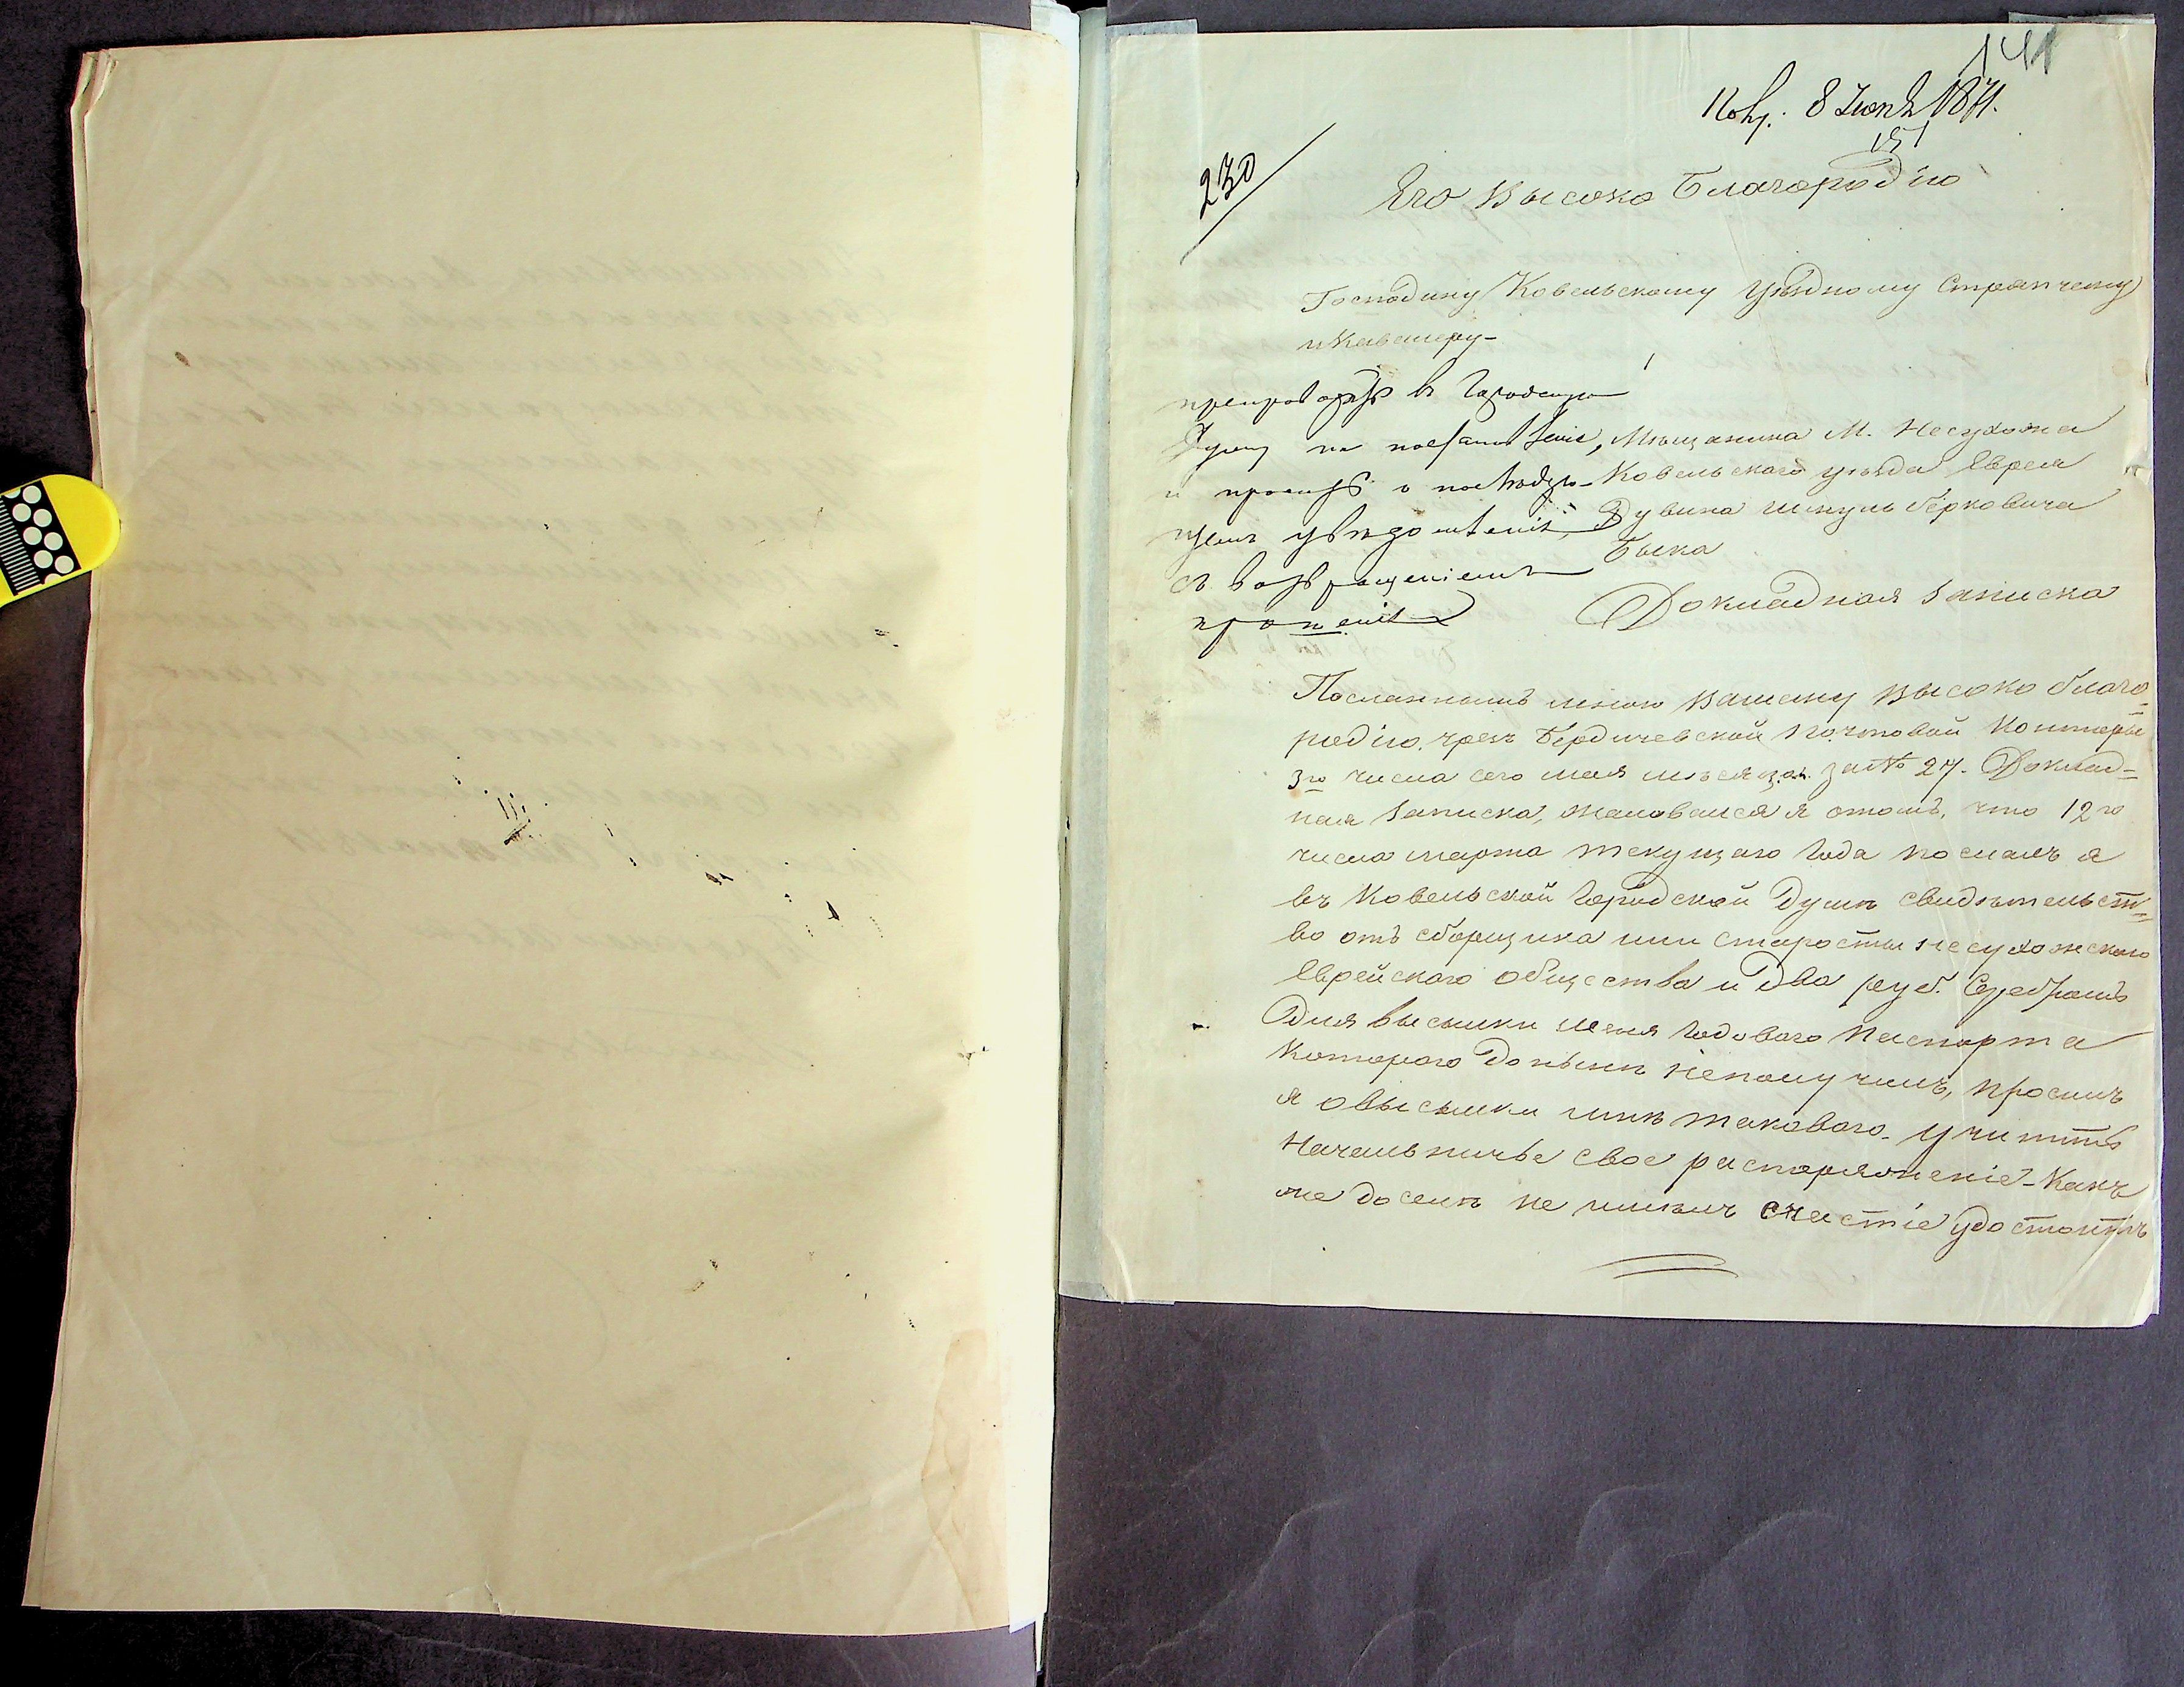 141
8 Іюня 1871.
151
230
Его Высоко Благородію
Господину Ковельскому Уѣздному Стряпчему
и Кавалеру
препроводить в Городскую
Думу на постановленіе,
и просить о послѣдую-
щемъ увѣдомленіи,
съ возвращеніемъ
прошенія
Мѣщанина М. Несухожа
Ковельскаго уѣзда Еврея
Дувина Шмуль Берковича
Быка
Докладная Записка
Посланнымъ мною Вашему Высоко благо=
родію чрезъ Бердичевской Почтовой Конторы
3го числа сего мая мѣсяца за № 27. Доклад=
ная Записка, жаловался я отомъ, что 12го
числа марта текущаго Года послалъ я
въ Ковельской Городской Думѣ свидѣтельст=
во отъ сборщика или старосты несухожскаго
Еврейскаго общества и Два руб. Серебромъ
Для высылки меня Годоваго Паспорта
Котораго Донынѣ неполучилъ, просилъ
я овысылки мнѣ таковаго. Учинить
Начальничье свое распоряженіе - Какъ
же досемъ не имѣлъ счастіе удостоитъ